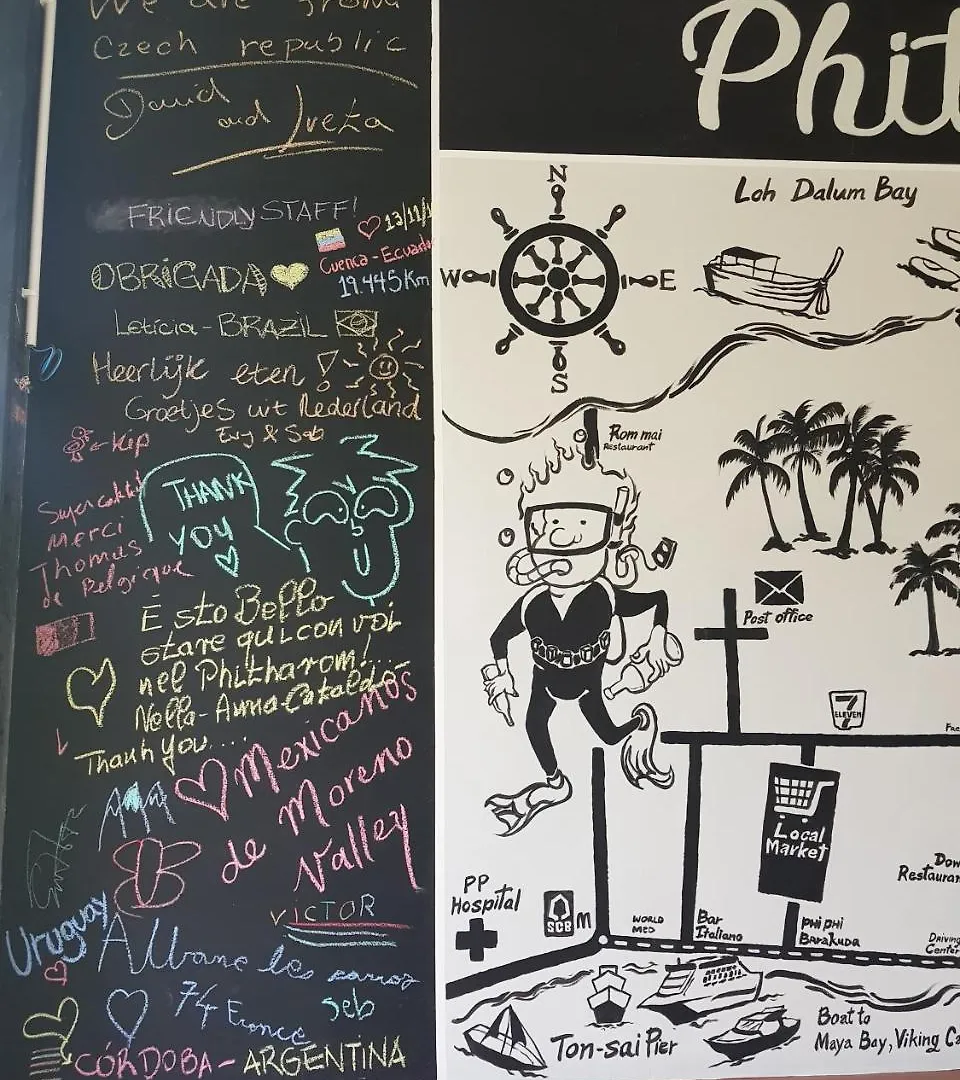 We are from
Czech republic
David
and Iveta
FRIENDLY STAFF!
13/11/1
Cuenca - Ecuador
19.445 Km
OBRIGADA
Letícia - BRAZIL
Heerlijk eten!
Groetjes uit Nederland
Evy & Seb
kip
THANK
YOU
Merci
Thomas
de Belgique
È sto Bello
stare qui con voi
nel Phitharom!...
Nella - Anna - Cataldo
Thank you....
Mexicanos
de Moreno
Valley
VICTOR
Uruguay
Albane les
seb
74 France
CÓRDOBA - ARGENTINA
Phit
N
W E
S
Loh Dalum Bay
Rom mai
Restaurant
Post office
7
ELEVEN
Fac
Local
Market
Dow
Restauran
PP
Hospital
SCB
M
WORLD
MED
Bar
Italiano
PHI PHI
Barakuda
Driving
Center
Ton-sai Pier
Boat to
Maya Bay, Viking Ca